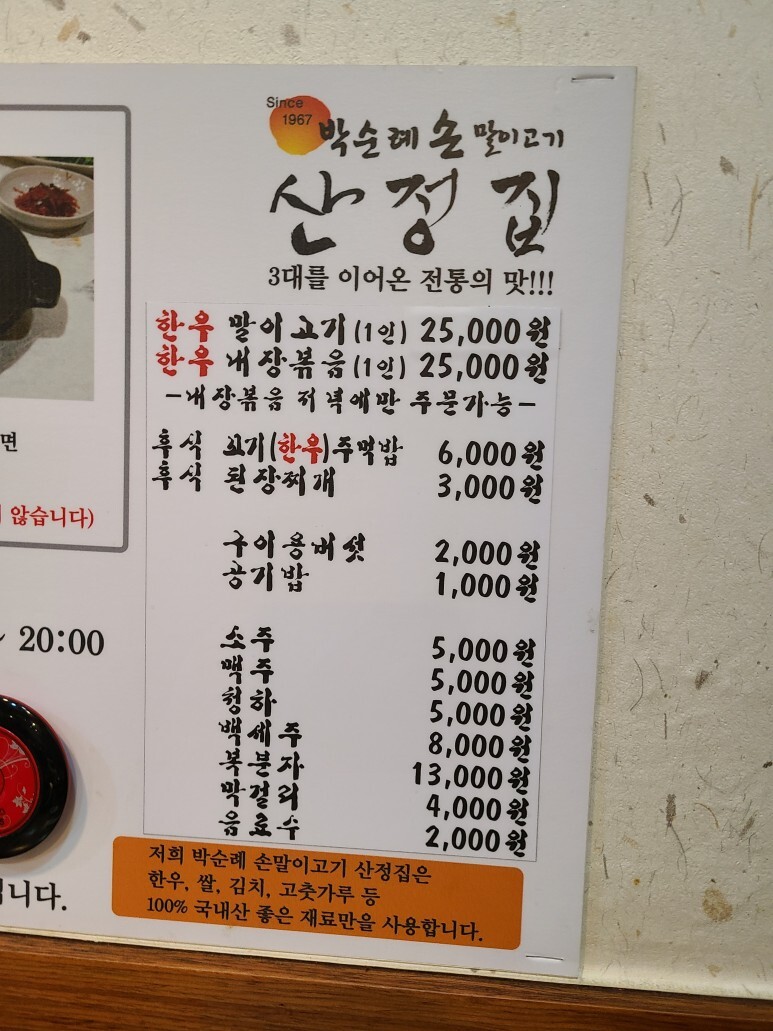 Since
1967
박순례 손 말이고기
산정집
3대를 이어온 전통의 맛!!!
한우 말이고기 (1인) 25,000원
한우 내장볶음 (1인) 25,000원
-내장볶음 저녁에만 주문가능-
후식 고기(한우)주먹밥 6,000원
후식 된장찌개 3,000원
구이용버섯 2,000원
공기밥 1,000원
소주 5,000원
맥주 5,000원
청하 5,000원
백세주 8,000원
복분자 13,000원
막걸리 4,000원
음료수 2,000원
저희 박순례 손말이고기 산정집은
한우, 쌀, 김치, 고춧가루 등
100% 국내산 좋은 재료만을 사용합니다.
면
않습니다)
~ 20:00
니다.